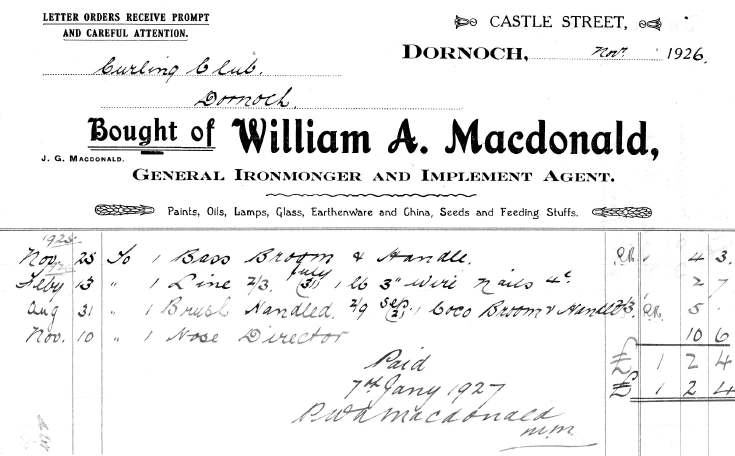 LETTER ORDERS RECEIVE PROMPT
AND CAREFUL ATTENTION.
CASTLE STREET,
DORNOCH, Novr 1926.
Curling Club.
Dornoch.
Bought of William A. Macdonald,
J. G. MACDONALD.
GENERAL IRONMONGER AND IMPLEMENT AGENT.
Paints, Oils, Lamps, Glass, Earthenware and China, Seeds and Feeding Stuffs.
1925
Nov. 25 To 1 Bass Broom & Handle. 4 3.
Feby 13 " 1 Line 2/3. July (31) 1 lb 3" Wire Nails 4d 2 7
Aug 31 " 1 Brush Handled. 2/9 Sep. 21 1 Coco Broom & Handle 2/3. 5
Nov. 10 " 1 Nose Director 10 6
Paid £ 1 2 4
7th Jany 1927 £ 1 2 4
Macdonald